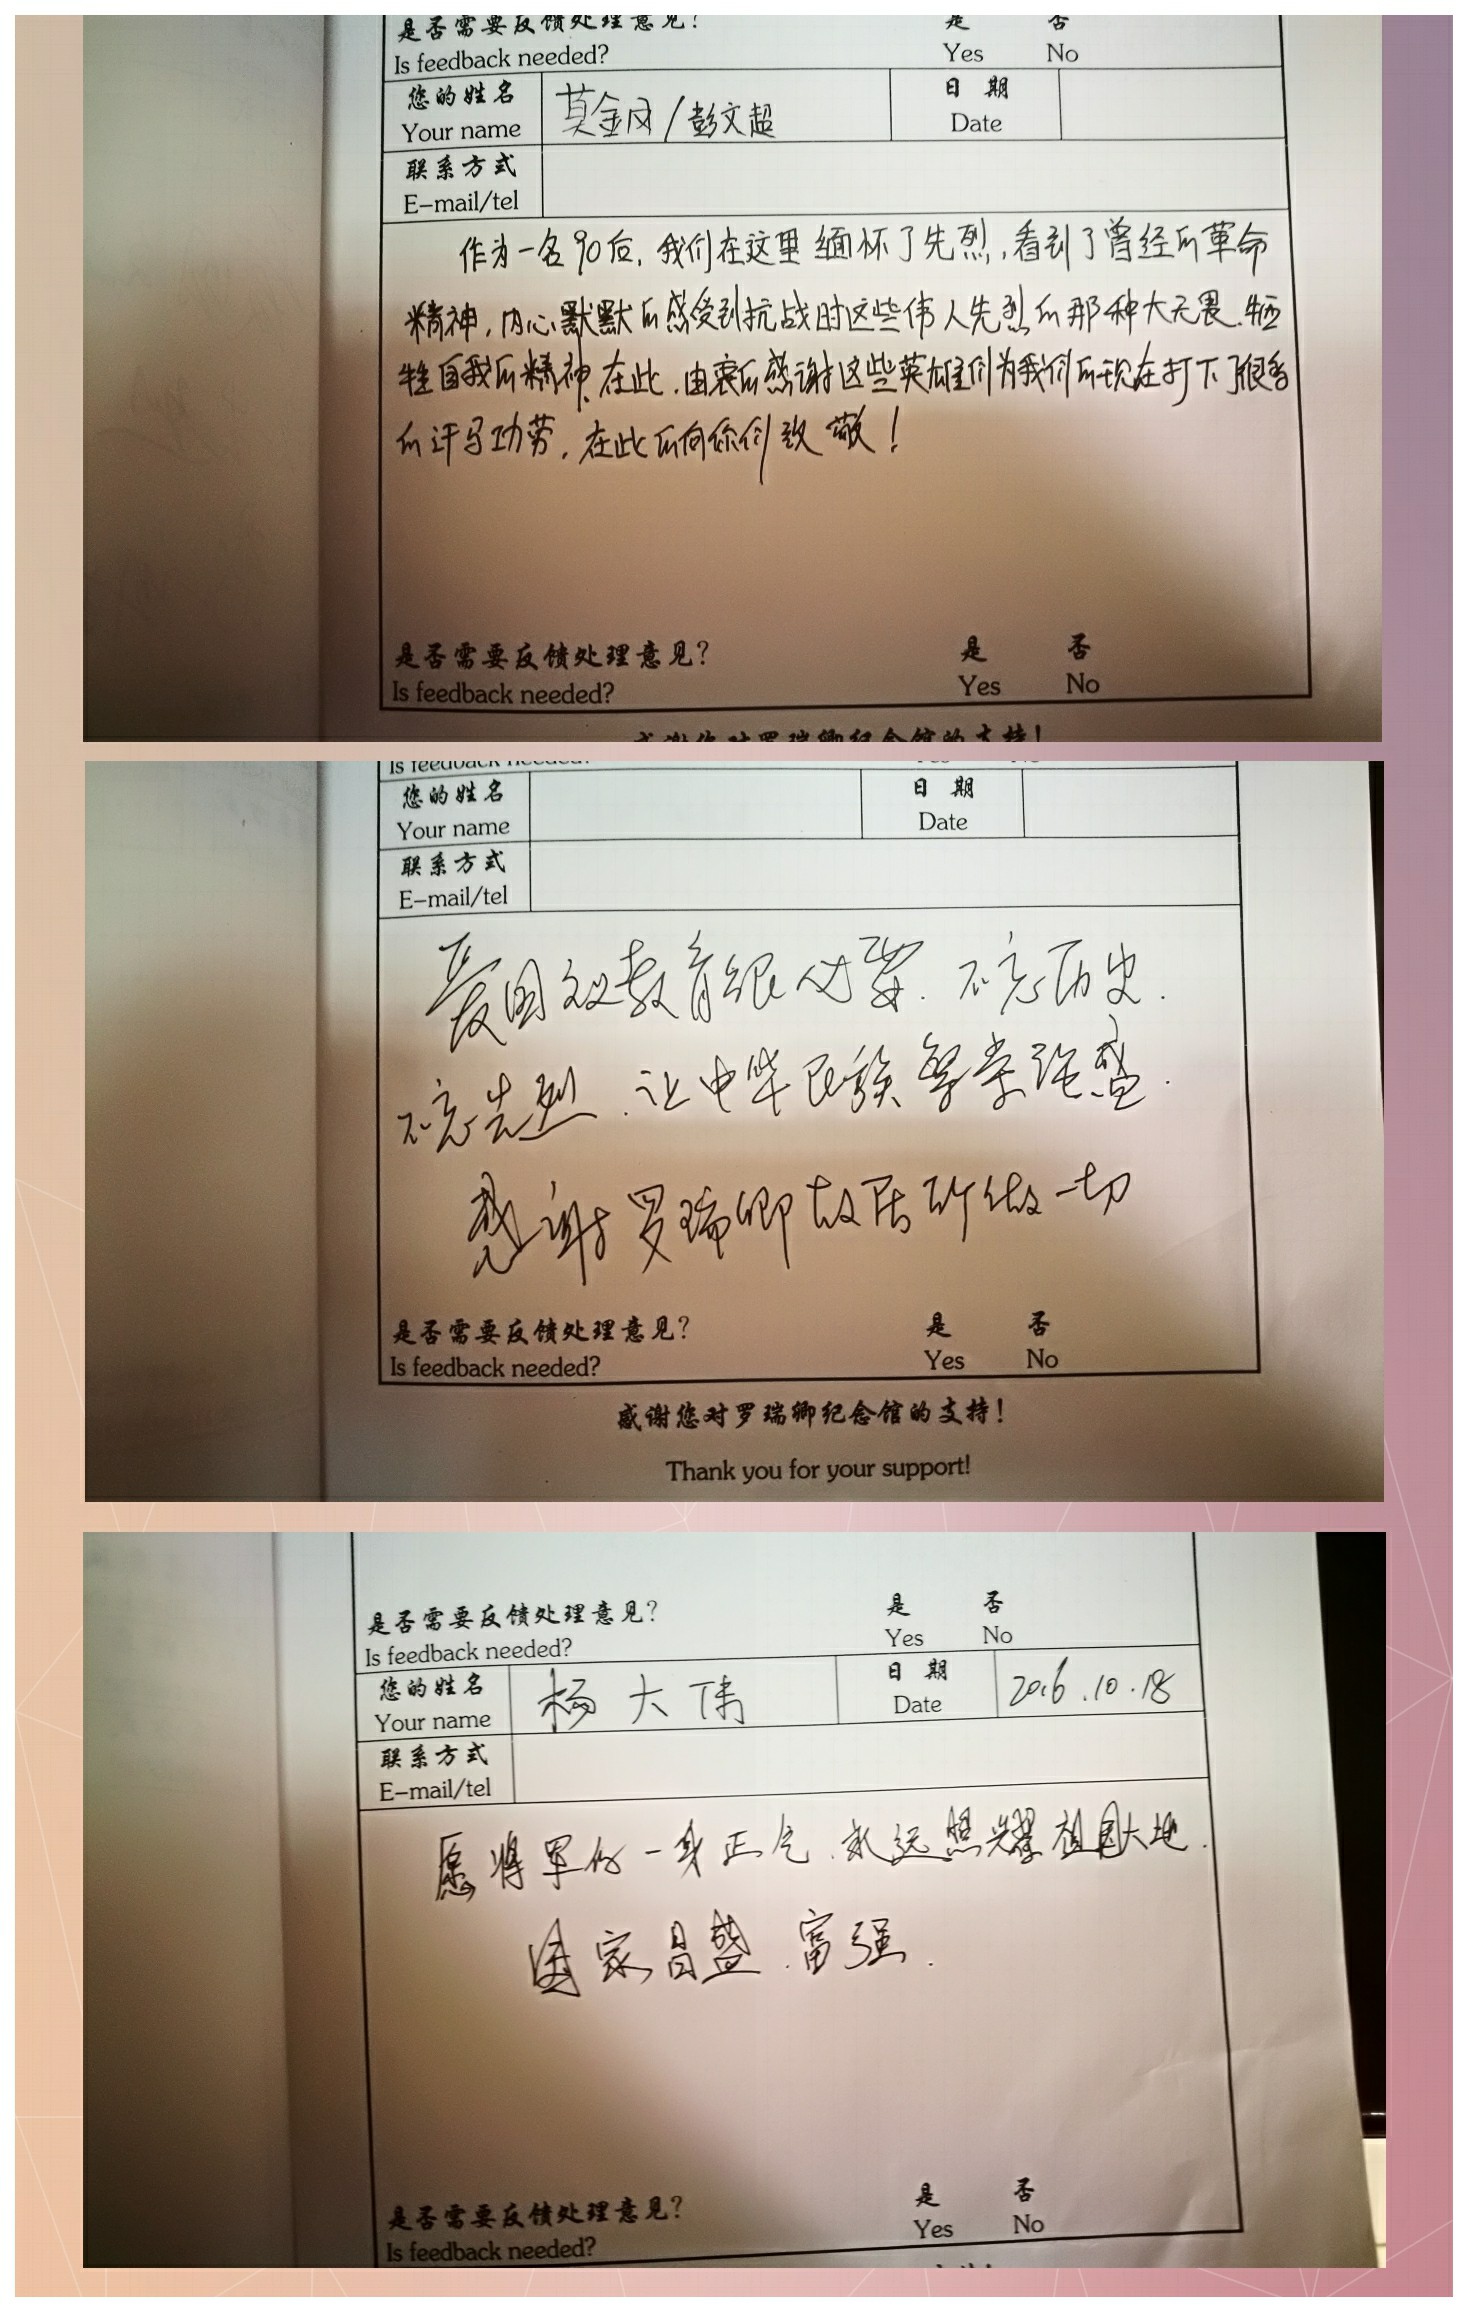 是否需要反馈处理意见? 是 否
Is feedback needed? Yes No
您的姓名 日期
Your name 莫金凤/彭文超 Date
联系方式
E-mail/tel
作为一名90后,我们在这里缅怀了先烈,看到了曾经的革命
精神,内心默默的感受到抗战时这些伟人先烈的那种大无畏.牺
牲自我的精神.在此.由衷的感谢这些英雄们为我们的现在打下了很多
的汗马功劳,在此的向你们致敬!
是否需要反馈处理意见? 是 否
Is feedback needed? Yes No
感谢您对罗瑞卿纪念馆的支持!
Is feedback needed? Yes No
您的姓名 日期
Your name Date
联系方式
E-mail/tel
爱国教育很必要.不忘历史.
不忘先烈.让中华民族繁荣强盛.
感谢罗瑞卿故居所做一切
是否需要反馈处理意见? 是 否
Is feedback needed? Yes No
感谢您对罗瑞卿纪念馆的支持!
Thank you for your support!
是否需要反馈处理意见? 是 否
Is feedback needed? Yes No
您的姓名 杨大伟 日期 2016.10.18
Your name Date
联系方式
E-mail/tel
愿将军的一身正气.永远照耀祖国大地.
国家昌盛.富强.
是否需要反馈处理意见? 是 否
Is feedback needed? Yes No